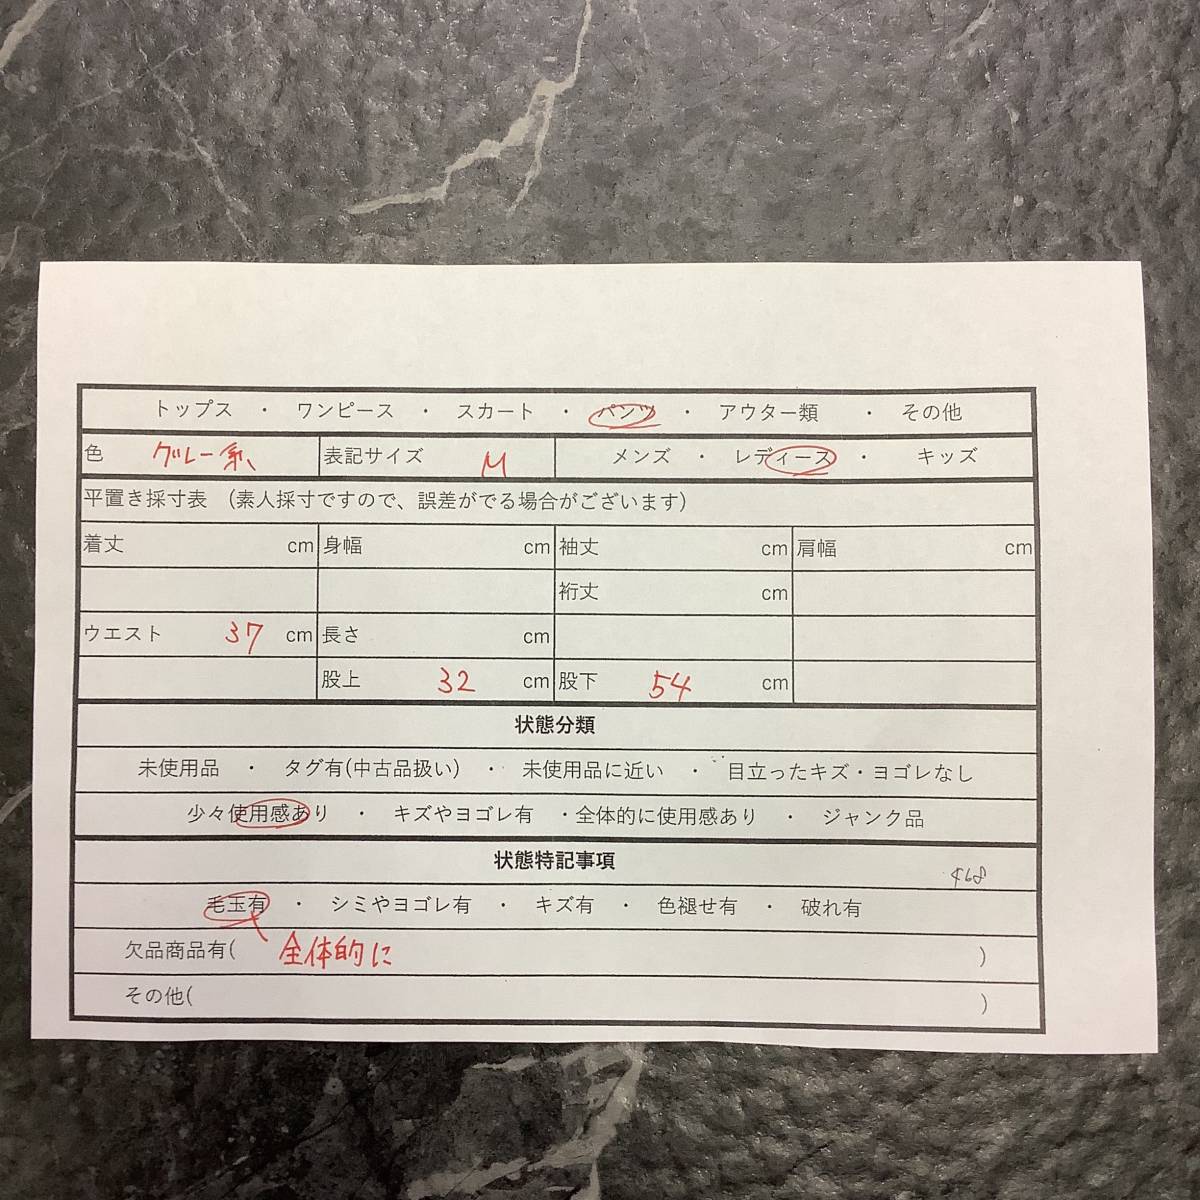 トップス ・ ワンピース ・ スカート ・ パンツ ・ アウター類 ・ その他
色 グレー系 表記サイズ M メンズ ・ レディース ・ キッズ
平置き採寸表 (素人採寸ですので、誤差がでる場合がございます)
着丈 cm 身幅 cm 袖丈 cm 肩幅 cm
裄丈 cm
ウエスト 37 cm 長さ cm
股上 32 cm 股下 54 cm
状態分類
未使用品 ・ タグ有(中古品扱い) ・ 未使用品に近い ・ 目立ったキズ・ヨゴレなし
少々使用感あり ・ キズやヨゴレ有 ・全体的に使用感あり ・ ジャンク品
状態特記事項 468
毛玉有 ・ シミやヨゴレ有 ・ キズ有 ・ 色褪せ有 ・ 破れ有
欠品商品有( 全体的に )
その他( )